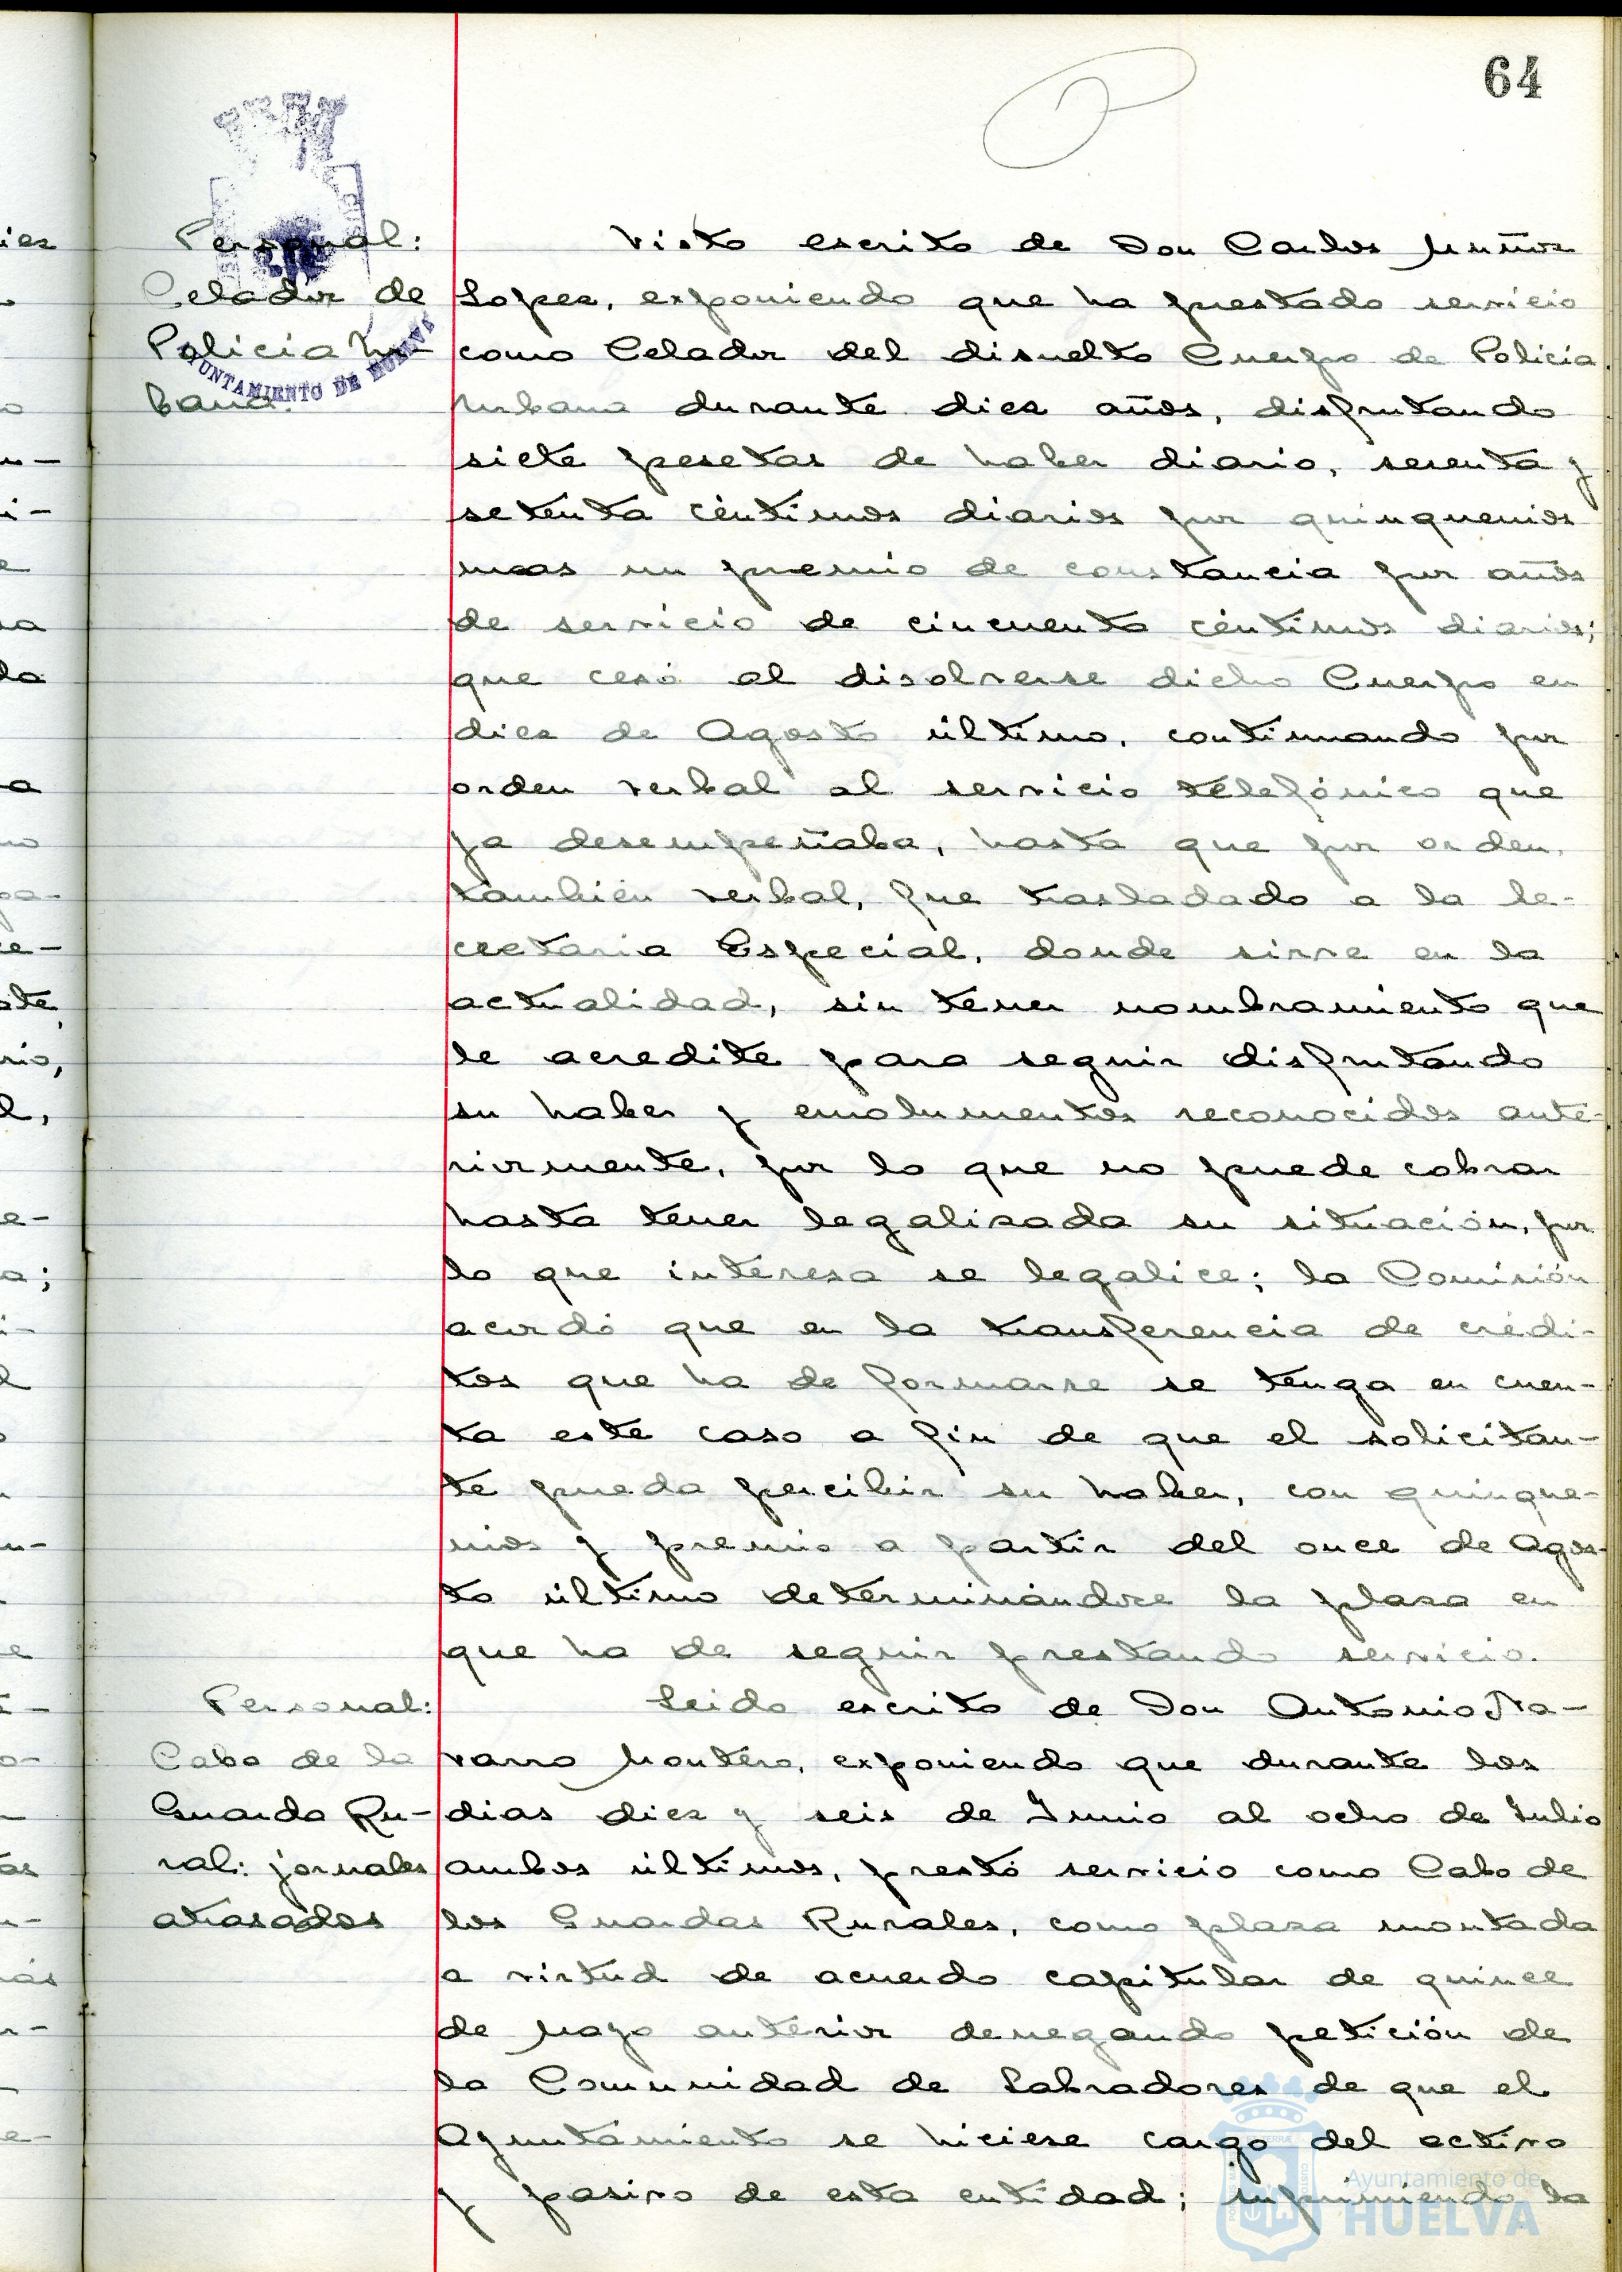 64
Personal:
Celador de
Policia Ur-
bana.
AYUNTAMIENTO DE HUELVA
Visto escrito de Don Carlos Muñoz
Lopez, exponiendo que ha prestado servicio
como Celador del disuelto Cuerpo de Policia
Urbana durante diez años, disfrutando
siete pesetas de haber diario, sesenta y
setenta céntimos diarios por quinquenios
mas un premio de constancia por años
de servicio de cincuenta céntimos diarios;
que cesó al disolverse dicho Cuerpo en
diez de Agosto último, continuando por
orden verbal al servicio telefónico que
ya desempeñaba, hasta que por orden,
también verbal, fue trasladado a la Se-
cretaria Especial, donde sirve en la
actualidad, sin tener nombramiento que
le acredite para seguir disfrutando
su haber y emolumentos reconocidos ante-
riormente, por lo que no puede cobrar
hasta tener legalizada su situación, por
lo que interesa se legalice; la Comisión
acordó que en la transferencia de crédi-
tos que ha de formarse se tenga en cuen-
ta este caso a fin de que el solicitan-
te pueda percibir su haber, con quinque-
nios y premio a partir del once de Agos-
to último determinándose la plaza en
que ha de seguir prestando servicio.
Personal:
Cabo de la
Guarda Ru-
ral: jornales
atrasados
Leido escrito de Don Antonio Na-
varro Montero, exponiendo que durante los
dias diez y seis de Junio al ocho de Julio
ambos últimos, prestó servicio como Cabo de
los Guardas Rurales, como plaza montada
a virtud de acuerdo capitular de quince
de Mayo anterior denegando petición de
la Comunidad de Labradores de que el
Ayuntamiento se hiciese cargo del activo
y pasivo de esta entidad; suprimiendo la
Ayuntamiento de
HUELVA